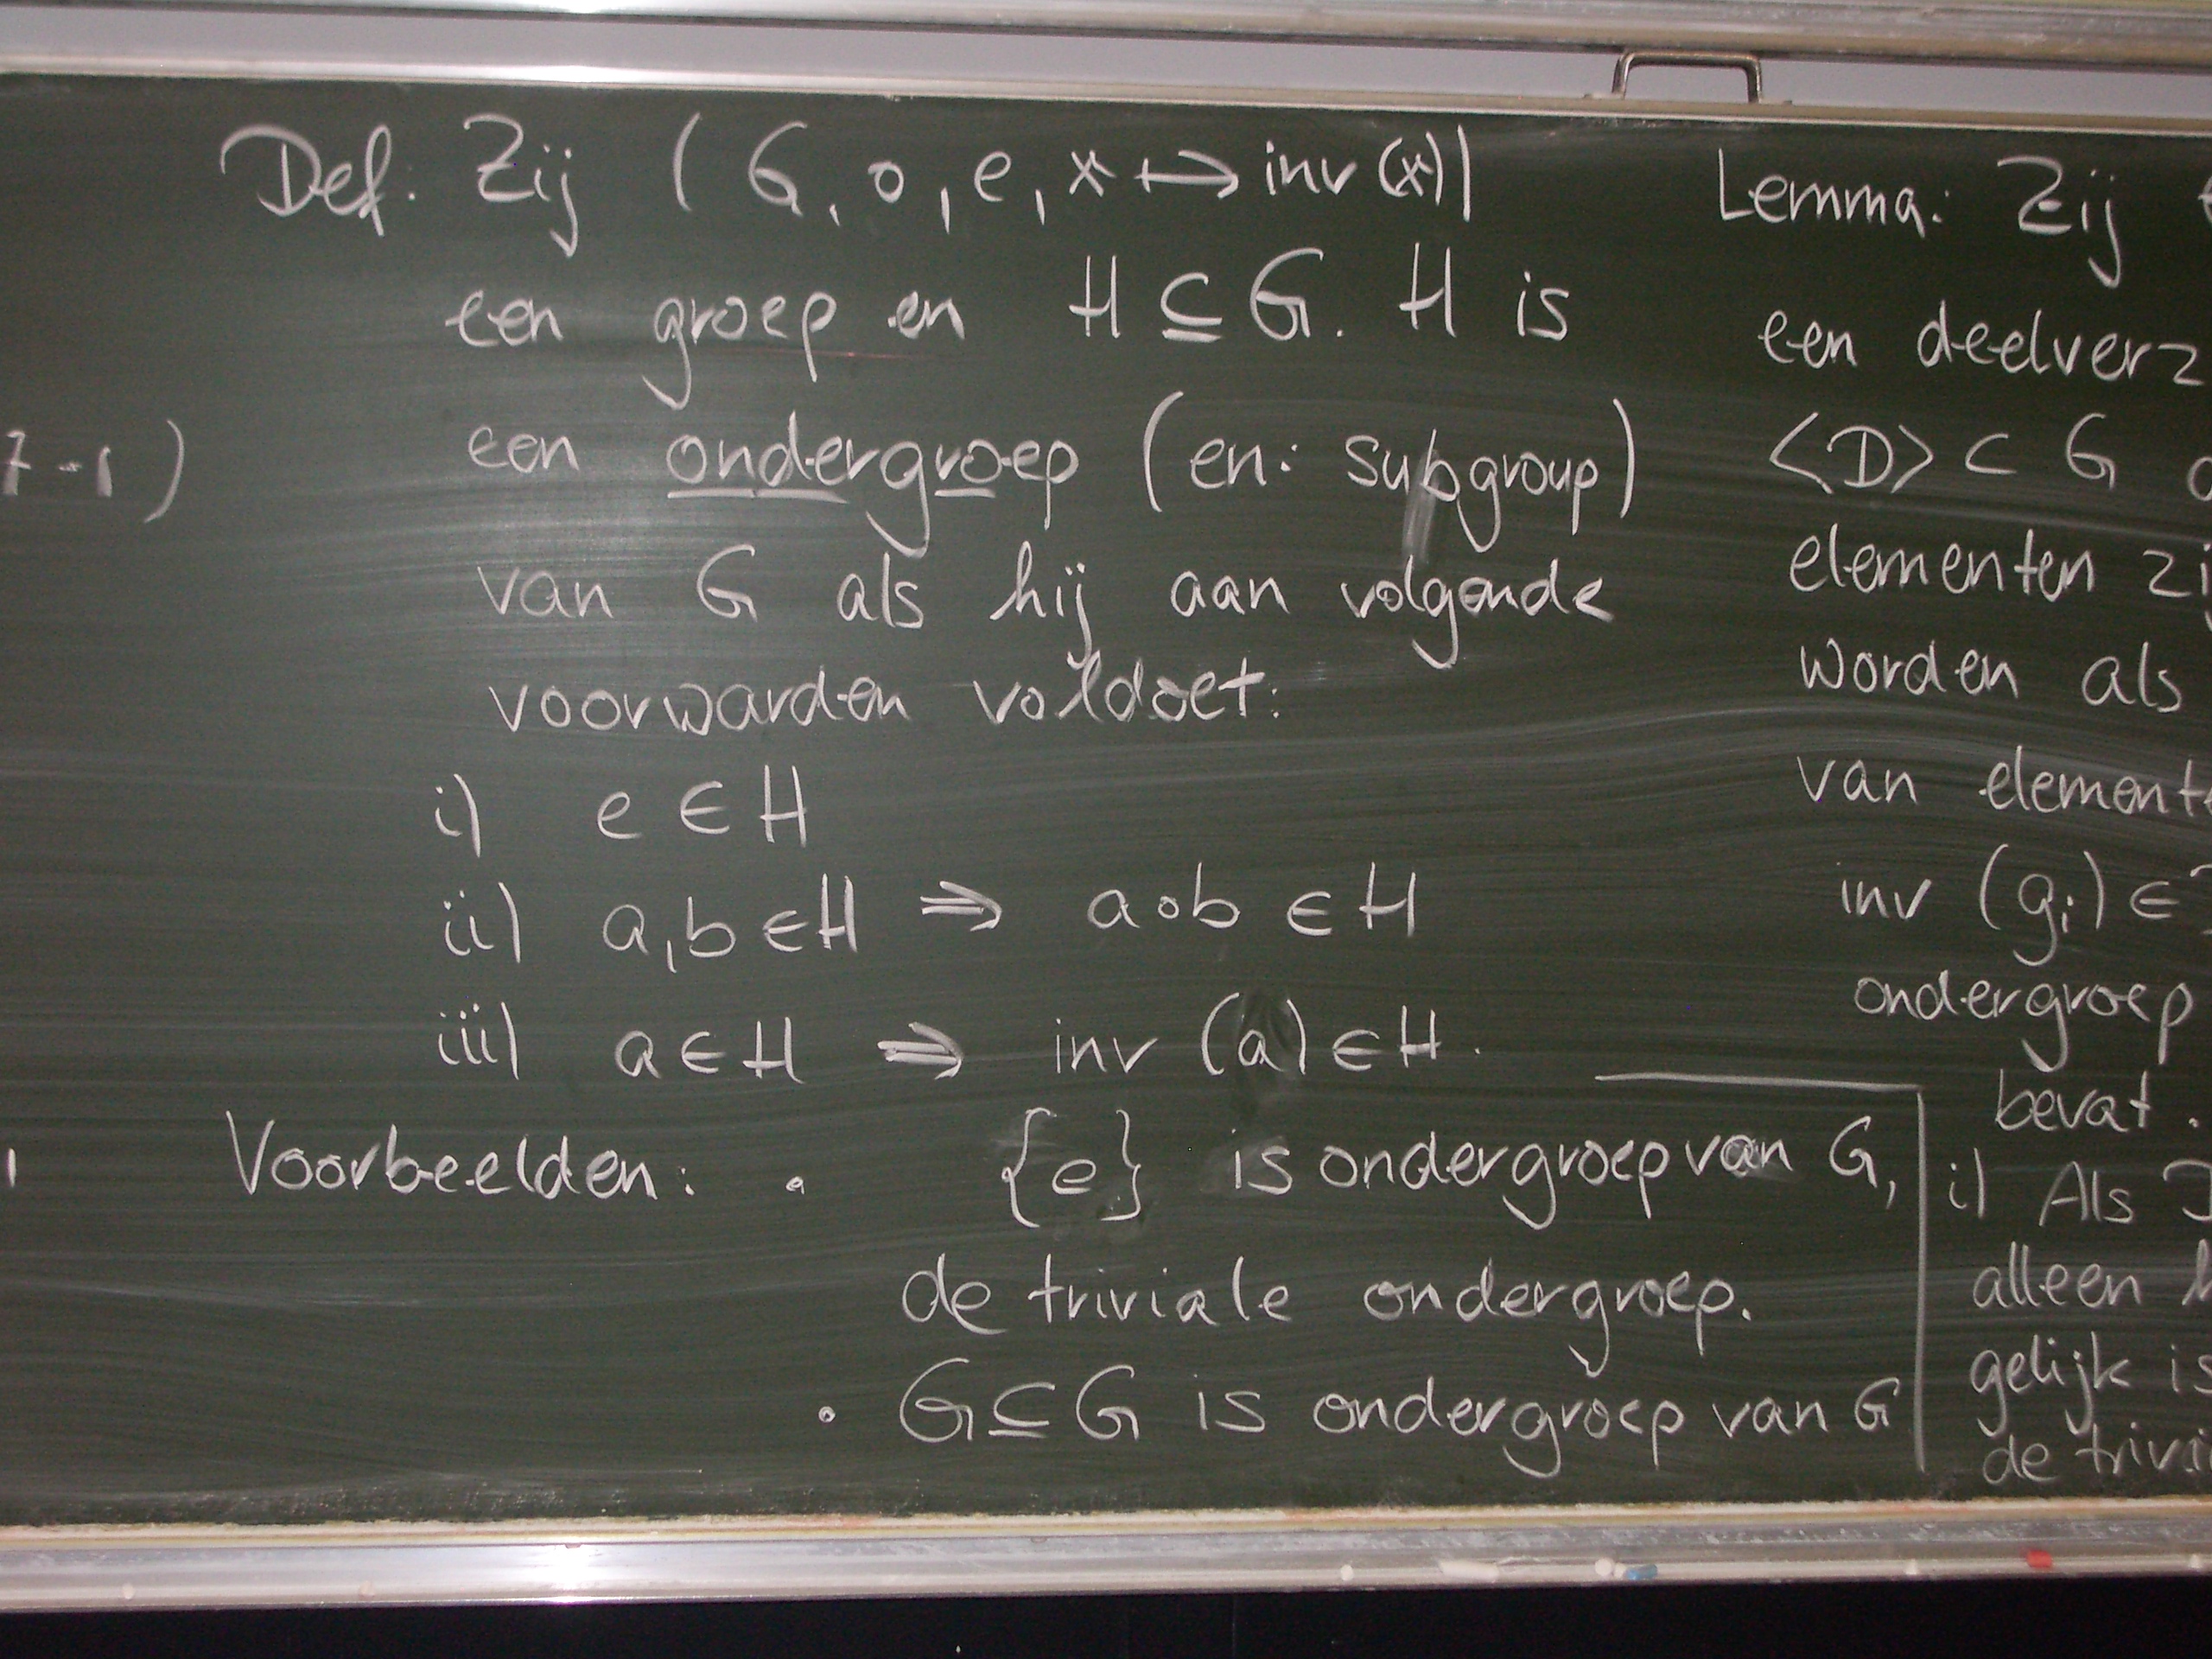 Def. Zij (G, o, e, x ↦ inv(x))
een groep en H ⊆ G. H is
een ondergroep (en: subgroup)
van G als hij aan volgende
voorwarden voldoet:
i) e ∈ H
ii) a, b ∈ H ⇒ a∘b ∈ H
iii) a ∈ H ⇒ inv (a) ∈ H.
Voorbeelden: • {e} is ondergroep van G,
de triviale ondergroep.
• G ⊆ G is ondergroep van G
7-1)
Lemma: Zij
een deelverz
<D> ⊂ G
elementen zij
worden als
van elemente
inv (gi) ∈
ondergroep
bevat.
i) Als
alleen
gelijk is
de trivi